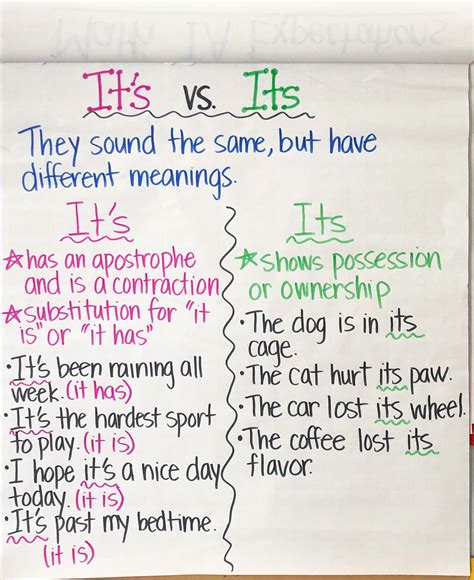 It's vs. Its
They sound the same, but have
different meanings.
It's
☆has an apostrophe
and is a contraction
☆substitution for "it
is" or "it has"
•It's been raining all
week. (it has)
•It's the hardest sport
to play. (it is)
•I hope it's a nice day
today. (it is)
•It's past my bedtime.
(it is)
Its
☆shows possession
or ownership
•The dog is in its
cage.
•The cat hurt its paw.
•The car lost its wheel.
•The coffee lost its
flavor.